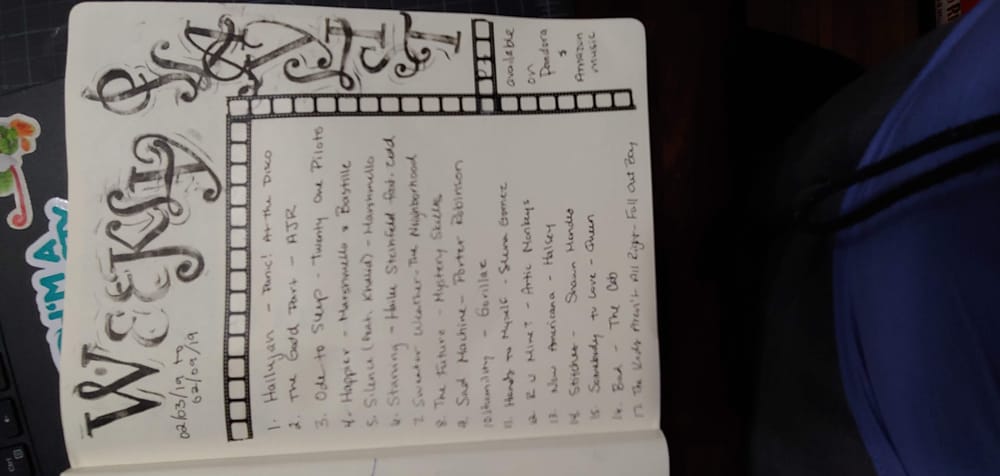 WEEKLY
PLAYLIST
02/03/19 to
02/09/19
available
on
Pandora
&
Amazon
music
1. Hallujah - Panic! At the Disco
2. The Good Part - AJR
3. Ode to Sleep - Twenty One Pilots
4. Happier - Marshmello & Bastille
5. Silence (feat. Khalid) - Marshmello
6. Starving - Hailee Steinfeld feat. Zedd
7. Sweater Weather - The Neighborhood
8. The Future - Mystery Skulls
9. Sad Machine - Porter Robinson
10. Humility - Gorillaz
11. Hands to Myself - Selena Gomez
12. R U Mine? - Artic Monkeys
13. New Americana - Halsey
14. Stitches - Shawn Mendes
15. Somebody to Love - Queen
16. Bad - The Cab
17. The Kids Aren't All Right - Fall Out Boy
I'M A
Ctrl